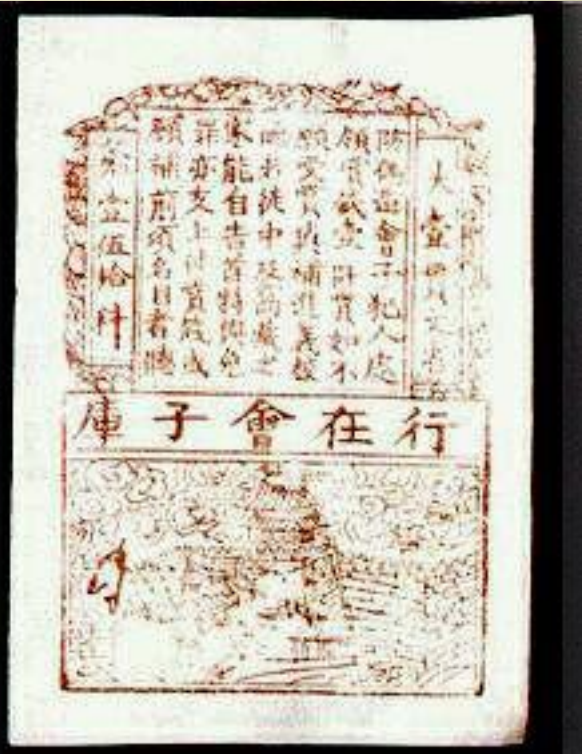 大壹
會子犯人處
賞錢壹阡貫如不
願支賞與補進義校
徒中及窩藏之
家能自告首特與免
罪亦支上件賞錢或
願補前項名目者聽
第壹伍拾
行在會子庫